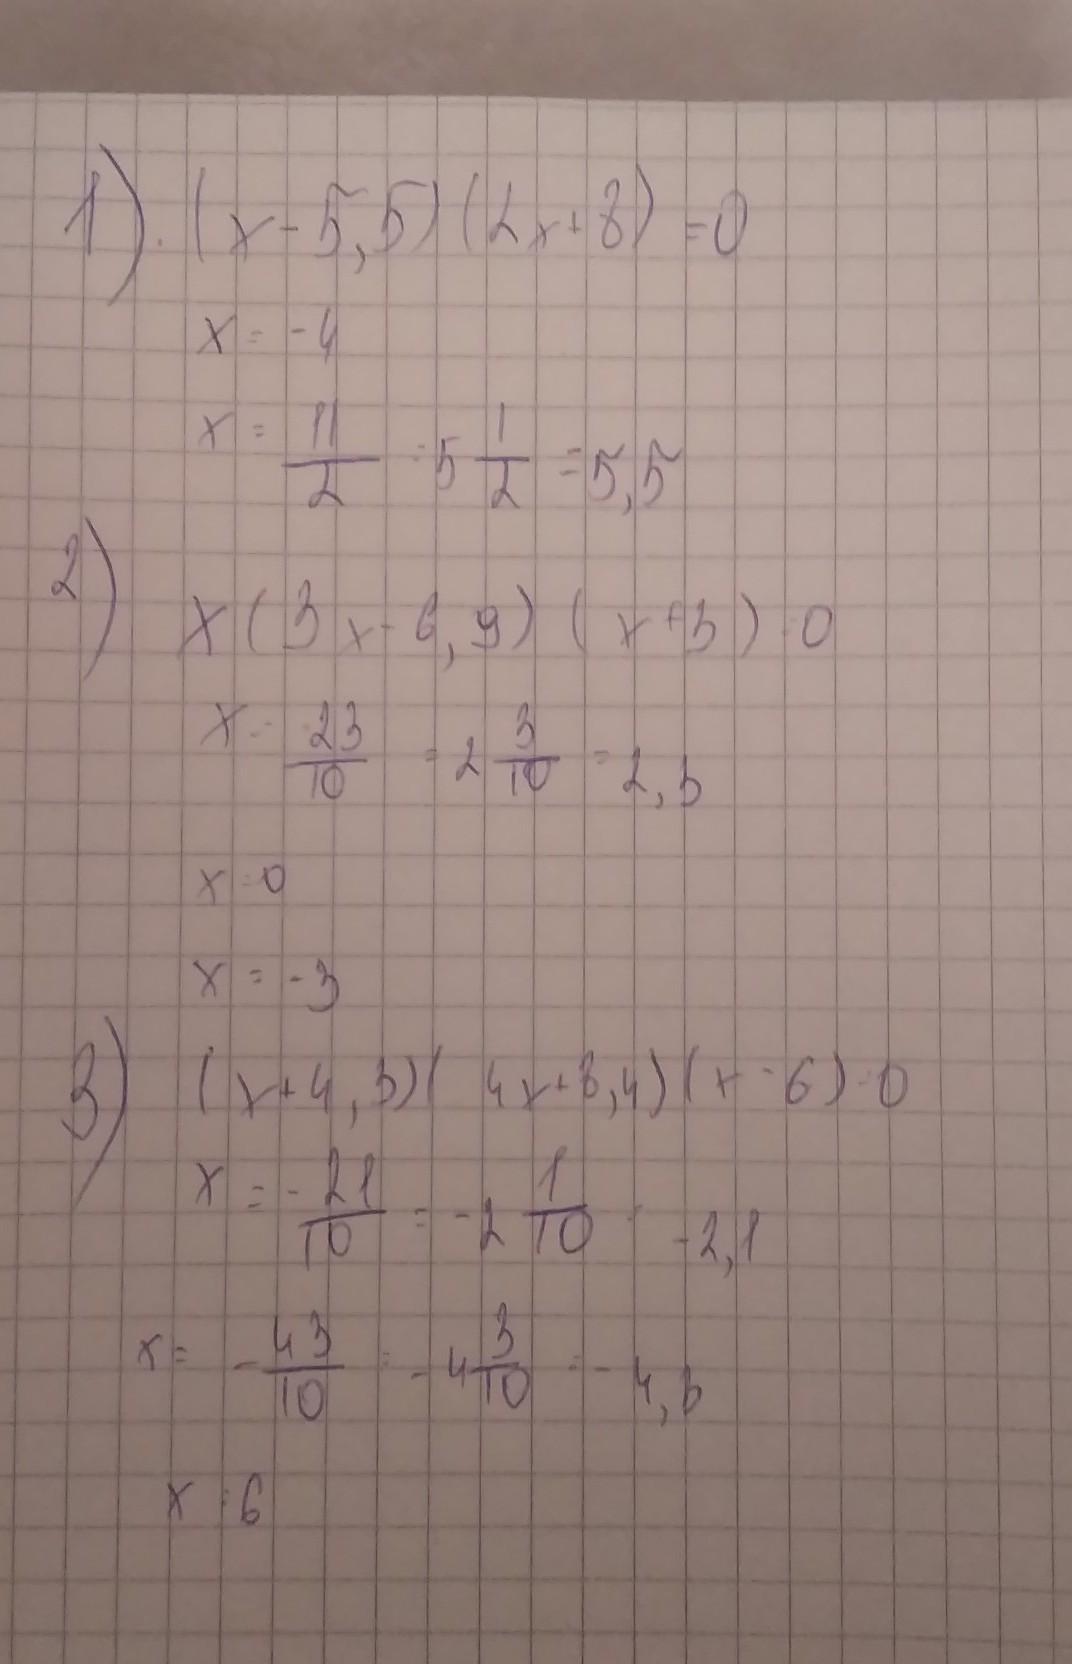 1). (x-5,5)(2x+8)=0
x=-4
x= 11/2 = 5 1/2 = 5,5
2) x(3x-6,9)(x+3)=0
x= 23/10 = 2 3/10 = 2,3
x=0
x=-3
3) (x+4,3)(4x+8,4)(x-6)=0
x=- 21/10 = -2 1/10 = -2,1
x= - 43/10 = -4 3/10 = -4,3
x=6